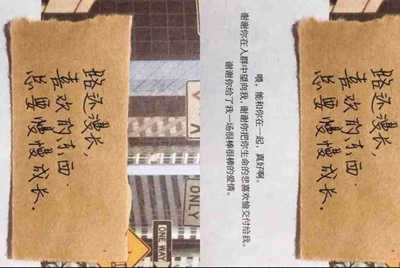 路还漫长，
喜欢的东西
总要慢慢成长。
ONLY
ONE WAY
能和你在一起，真好啊。
谢谢你在人群中望向我，谢谢你把你生命的悲喜欢愉交付给我。
谢谢你给了我一场很棒很棒的爱情。
路还漫长，
喜欢的东西
总要慢慢成长。
ONLY